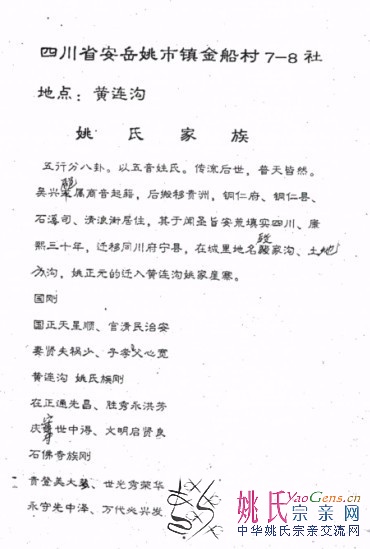 四川省安岳姚市镇金船村7-8社
地点：黄连沟
姚 氏 家 族
五行分八卦。以五音姓氏。传流后世，普天皆然。
吴兴属商音起籍，后搬移贵洲，铜仁府、铜仁县、
石溪司、清浪街居住，其于闻圣旨安荒填实四川、康
熙三十年，迁移同川府宁县，在城里地名段家沟、土地
沟，姚正光的迁入黄连沟姚家星寨。
国刚
国正天星顺、官清民治安
妻贤夫祸少、子孝父心宽
黄连沟 姚氏族刚
在正通先昌、胜秀永洪芳
庆世中得、文明启贤良
石佛寺族刚
青登美大、世光秀荣华
永守先中泽、万代兴发
姚氏YaoGens.cn
宗亲网
中华姚氏宗亲交流网